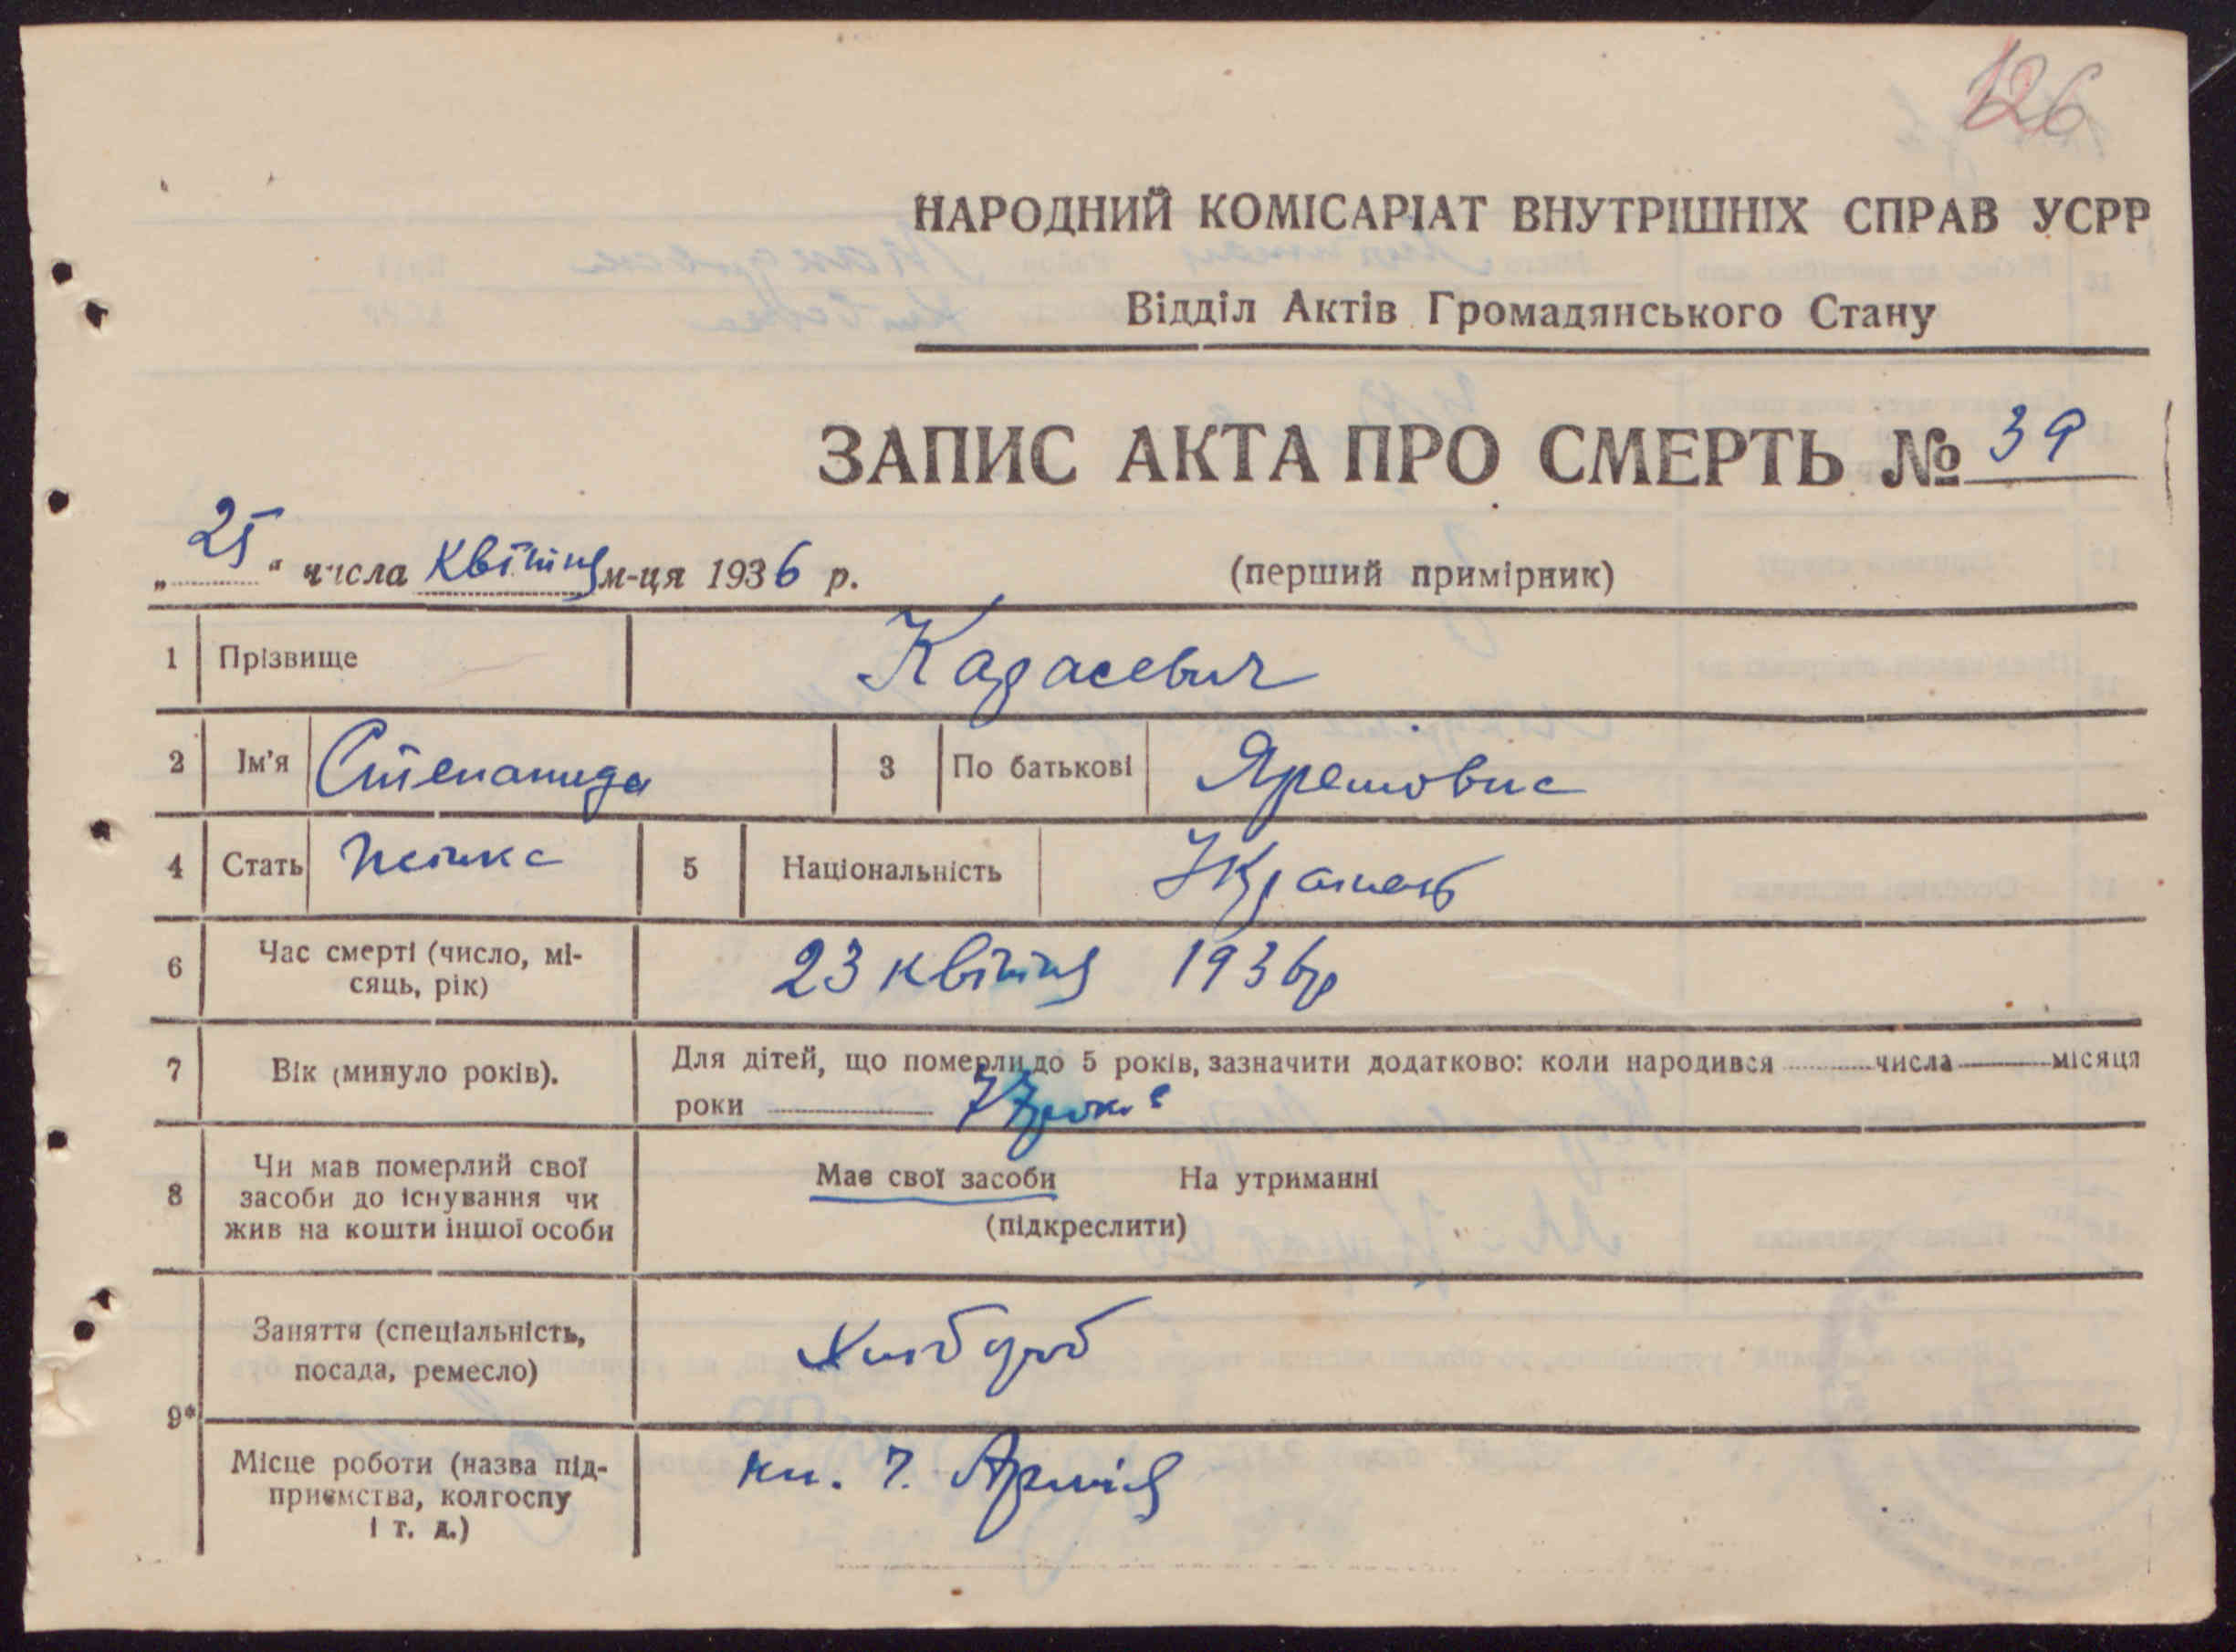 126
НАРОДНИЙ КОМІСАРІАТ ВНУТРІШНІХ СПРАВ УСРР
Відділ Актів Громадянського Стану
ЗАПИС АКТА ПРО СМЕРТЬ № 39
„25“ числа квітня м-ця 1936 р. (перший примірник)
1 Прізвище Кадасевич
2 Ім'я Степанида 3 По батькові
4 Стать жінка 5 Національність
6 Час смерті (число, мі-
сяць, рік) 23 квітня 1936р
7 Вік (минуло років). Для дітей, що померли до 5 років, зазначити додатково: коли народився числа місяця
роки 77 роки
8 Чи мав померлий свої
засоби до існування чи
жив на кошти іншої особи
Має свої засоби На утриманні
(підкреслити)
9* Заняття (спеціальність,
посада, ремесло) Хлібороб
Місце роботи (назва під-
приємства, колгоспу
і т. д.) Армія